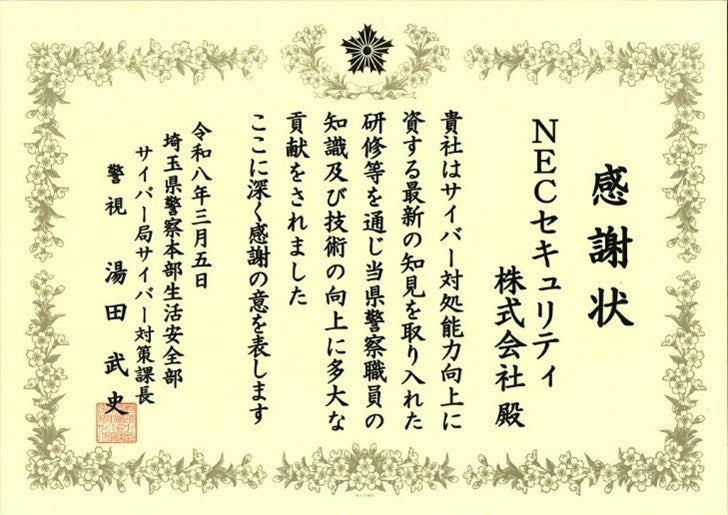 感謝状
NECセキュリティ
株式会社 殿
貴社はサイバー対処能力向上に
資する最新の知見を取り入れた
研修等を通じ当県警察職員の
知識及び技術の向上に多大な
貢献をされました
ここに深く感謝の意を表します
令和八年三月五日
埼玉県警察本部生活安全部
サイバー局サイバー対策課長
警視 湯田武史